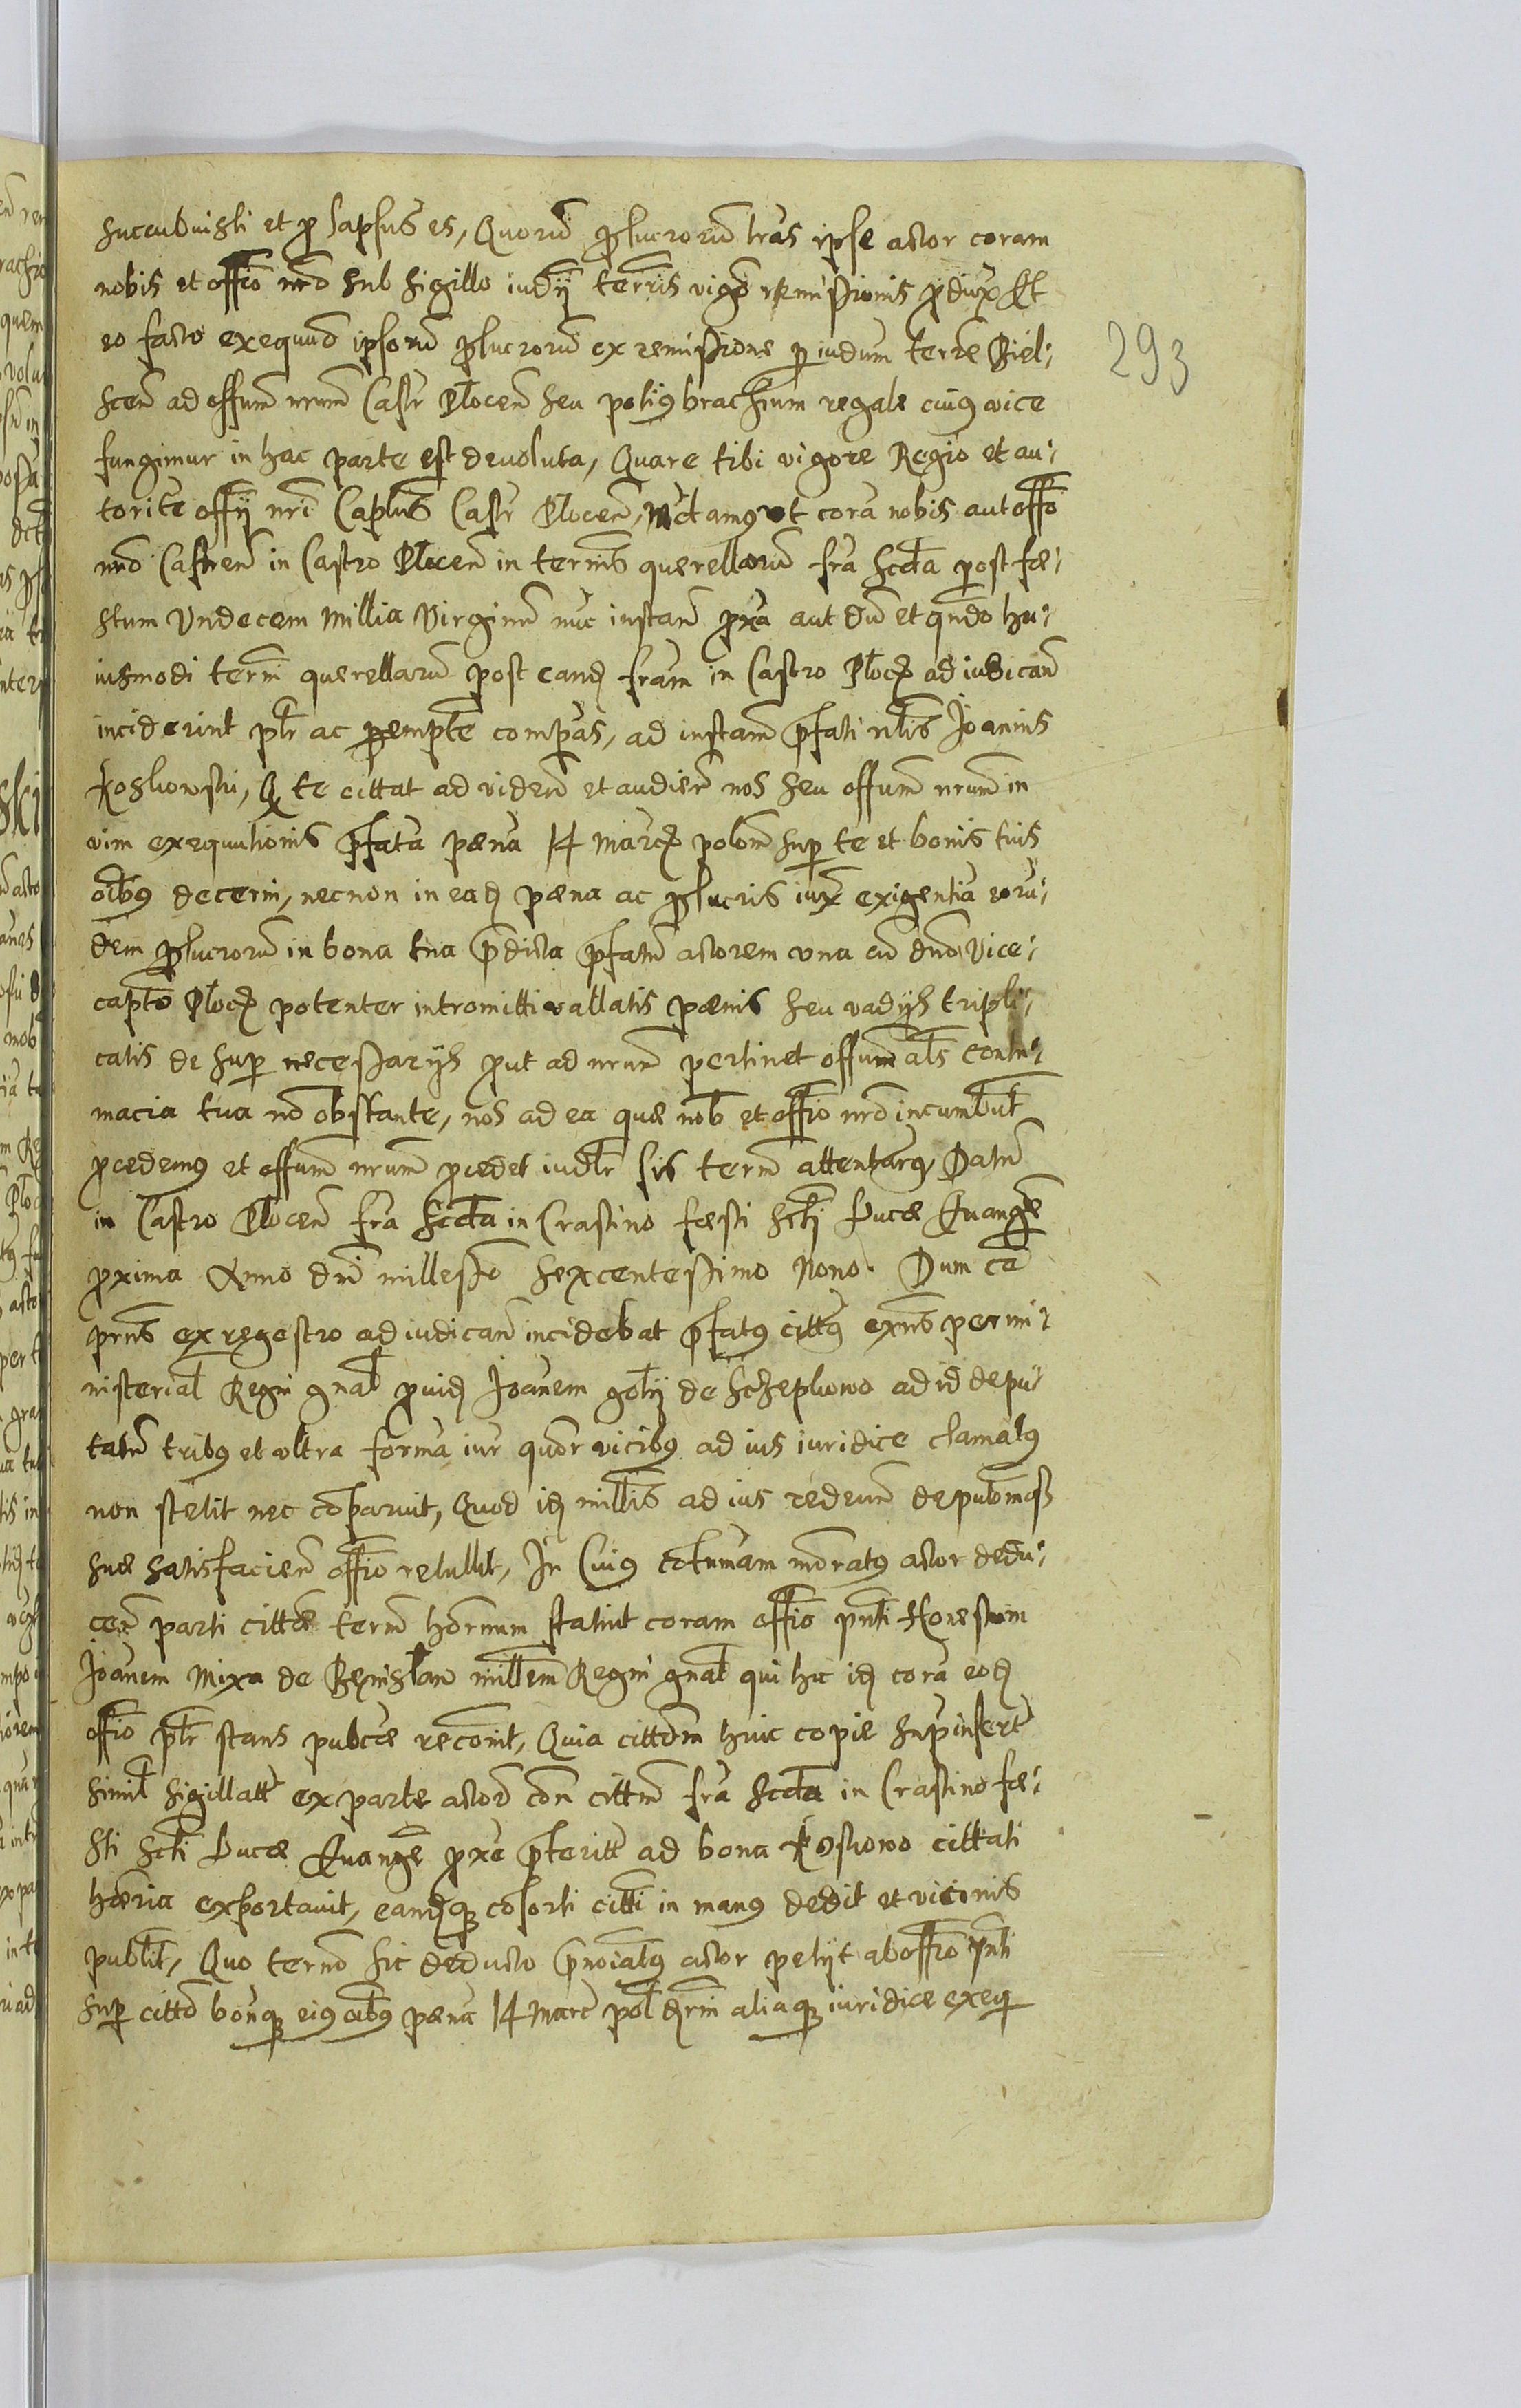 succubuisti et p lapsus es, Quorũ plucrorũ lras ipse actor coram
nobis et offio nro sub sigillo iudij terris vigo remissionis pdux Et
eo facto exequũo ipsorũ plucrorũ ex remissione p iudum terre Biel-
scen ad offum nrum Castr Plocen seu potiꝰ brachium regale cuiꝰ vice
fungimur in hac parte est devoluta, Quare tibi vigore Regio et au-
torite offij nri Caplis Castr Plocen, ut corã nobis aut offo
nro Castren in Castro Plocen in termis querellarũ fra scda post fe-
stum Undecem Millia Virginũ nũc instan pxa aut dũ et qndo hu-
iusmodi termi querellarũ post eand fram in Castro Ploc ad iudican
inciderint plr ac pempte compas, ad instam pfati nlis Joannis
Koskowski, Q te cittat ad viden et audien nos seu offum nrum in
vim exequutionis pfata pæna 14 Marc polon sup te et bonis tuis
oibꝰ decerni, necnon in ead pæna ac plucris iux exigentiã eoru-
dem plucrorũ in bona tua pdicta pfatũ actorem una cũ dno Vice-
capto Ploc potenter intromitti vallatis pænis seu vadijs tripli-
catis de sup necessarijs put ad nrum pertinet offum als contu-
macia tua nõ obstante, nos ad ea quæ nob et offio nro incumbut
pcedemꝰ et offum nrum pcedet iudlr sis term attentarꝰ, Datũ
in Castro Plocen fra scda in Crastino festi Scti Lucæ Euange
pxima Anno dni millesio sexcentesimo Nono. Dum ce
prns ex regestro ad iudican incidebat pfatꝰ cittꝰ exns per mi-
nisterial Regni gnal puid Joanem golij de Scheplowo ad id depu-
tatũ tribꝰ et ultra formã iur quor vicibꝰ ad ius iuridice clamatꝰ
non stetit nec cõparuit, Quod id millis ad ius redeun
suæ satisfacien offio retullit, In Cuiꝰ cõtumam mõratꝰ actor dedu-
cen parti cittæ termn hornum statuit coram offio pnti Honestum
Joanem Mixa de millem Regni gnal qui hic id corã eod
offio plr stans pubce recõnit, Quia cittom huic copiæ supinsert
simil sigillatt ex parte actor con cittm fra scda in Crastino fe-
sti Scti Lucæ Euange pxe pteritt ad bona Koskowo cittati
hæria exportavit, eandqꝫ cõsorti citti in manꝰ dedit et vicinis
publit, Quo termo sic deducto pnoiatꝰ actor petijt ab offio pnti
sup citto bonqꝫ eiꝰ oibꝰ pæna 14 Marc pol dcrni aliaqꝫ iuridice exeq
293